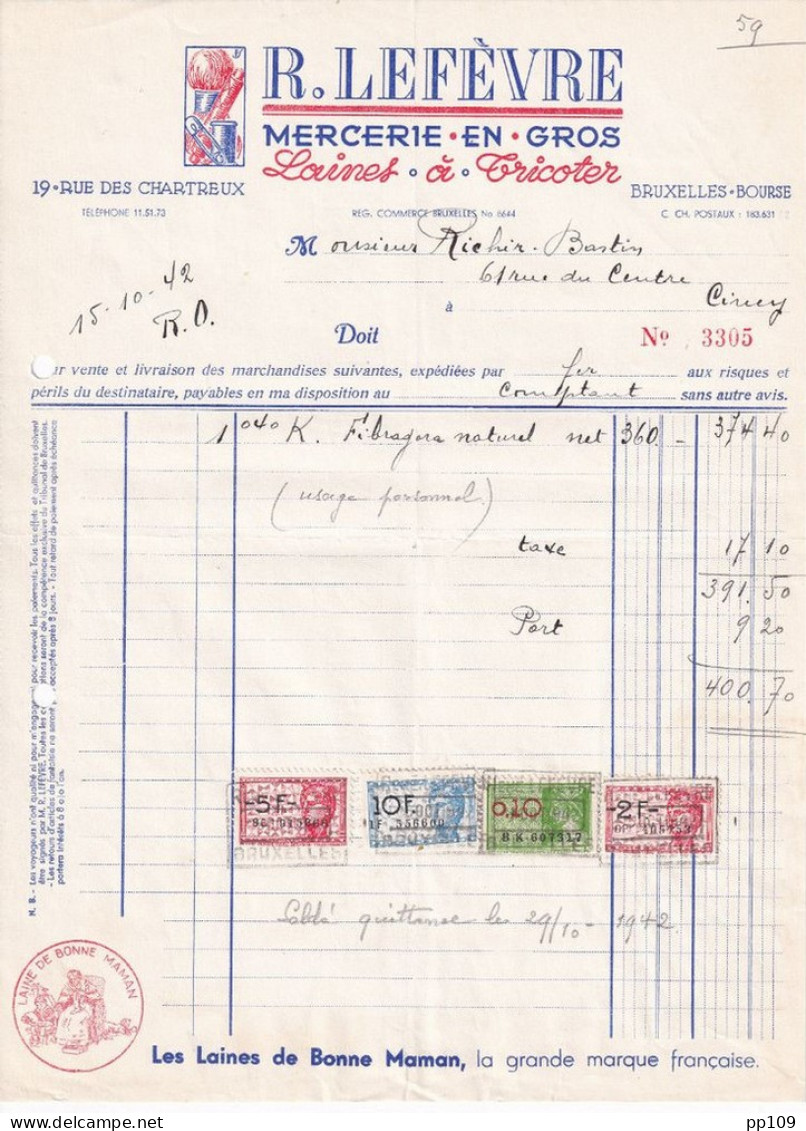 59
R. LEFÈVRE
MERCERIE • EN • GROS
Laines • à • Tricoter
19 • RUE DES CHARTREUX
BRUXELLES • BOURSE
TÉLÉPHONE 11.51.73
REG. COMMERCE BRUXELLES No 6644
C. CH. POSTAUX : 163.631
Monsieur Richir-Bastin
61 rue du Centre
à Ciney
15-10-42
R.D.
Doit
No 3305
ur vente et livraison des marchandises suivantes, expédiées par fer aux risques et
périls du destinataire, payables en ma disposition au comptant sans autre avis.
1 040 K. Fibragora naturel net 360.- 374 40
(usage personnel)
taxe 17 10
391.50
Port 9 20
400.70
N. B. - Les voyageurs n'ont qualité ni pour m'engager pour recevoir les paiements. Tous les effets et quittances doivent
être signés par M. R. LEFÈVRE. Toutes les tions seront de la compétence exclusive du Tribunal de Bruxelles.
- Les retours d'articles de fantaisie ne seront acceptés après 8 jours. - Tout retard de paiement après échéance
portera intérêts à 8 o/o l'an.
-5F-
10F.
0,10
-2F-
1F 556600
8 K 607317
BRUXELLES
Soldé quittance le 29/10-1942
LAINE DE BONNE MAMAN
Les Laines de Bonne Maman, la grande marque française.
pp109